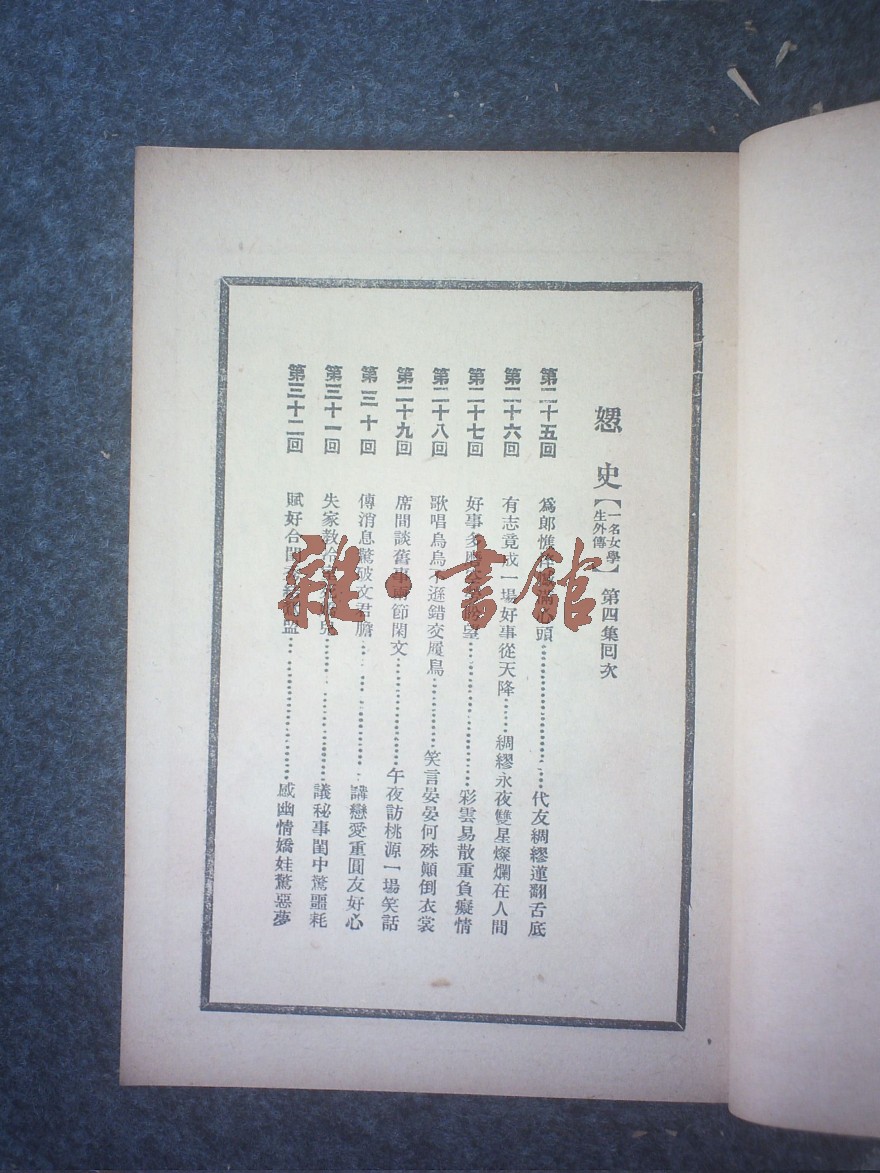 嬺史【一名女學生外傳】第四集回次
第二十五回 爲郎憔 心頭 代友綢繆蓮翻舌底
第二十六回 有志竟成一場好事從天降 綢繆永夜雙星燦爛在人間
第二十七回 好事多磨 望 彩雲易散重負癡情
第二十八回 歌唱烏烏不遜錯交履舄 笑言晏晏何殊顚倒衣裳
第二十九回 席間談舊事兩節閑文 午夜訪桃源一場笑話
第三十回 傳消息驚破文君膽 講戀愛重圓友好心
第三十一回 失家教 兒 議秘事閨中驚噩耗
第三十二回 賦好合閨 盟 感幽情嬌娃驚惡夢
雜·書館